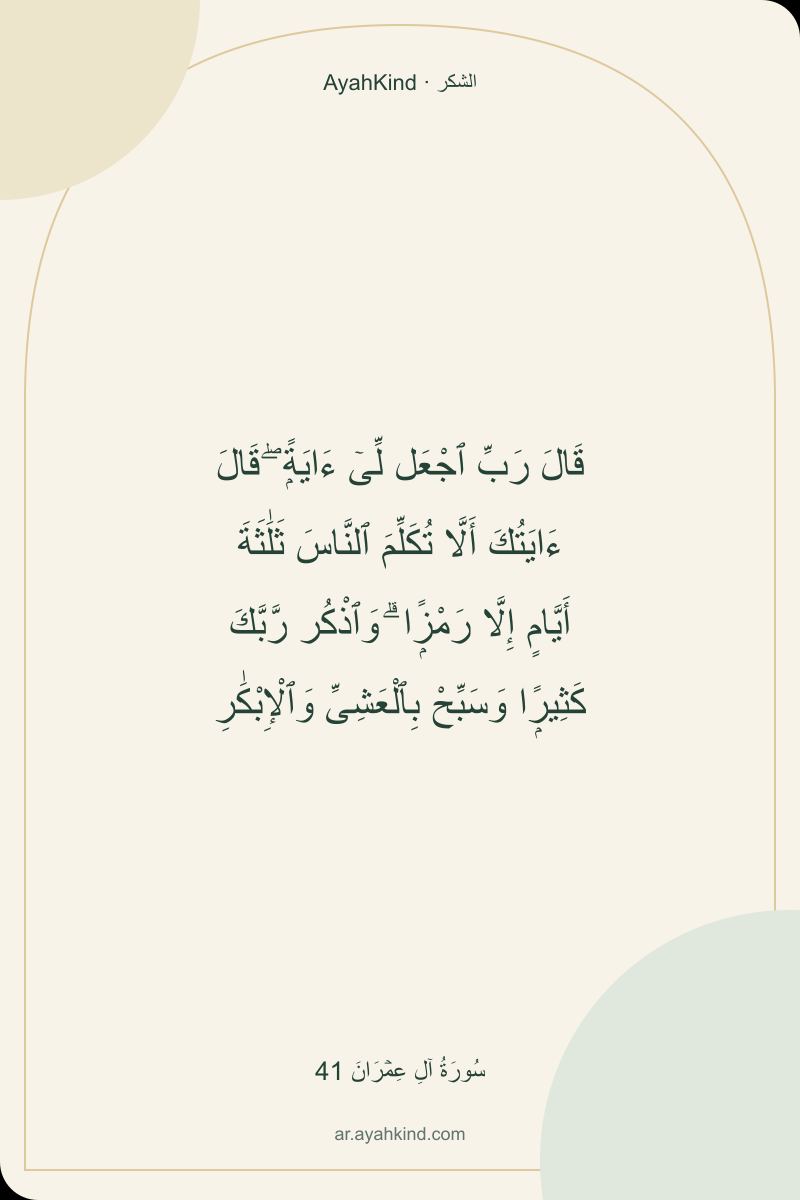 AyahKind · الشكر
قَالَ رَبِّ ٱجْعَل لِّىٓ ءَايَةًۭ ۖ قَالَ
ءَايَتُكَ أَلَّا تُكَلِّمَ ٱلنَّاسَ ثَلَٰثَةَ
أَيَّامٍ إِلَّا رَمْزًۭا ۗ وَٱذْكُر رَّبَّكَ
كَثِيرًۭا وَسَبِّحْ بِٱلْعَشِىِّ وَٱلْإِبْكَٰرِ
سُورَةُ آلِ عِمۡرَانَ 41
ar.ayahkind.com